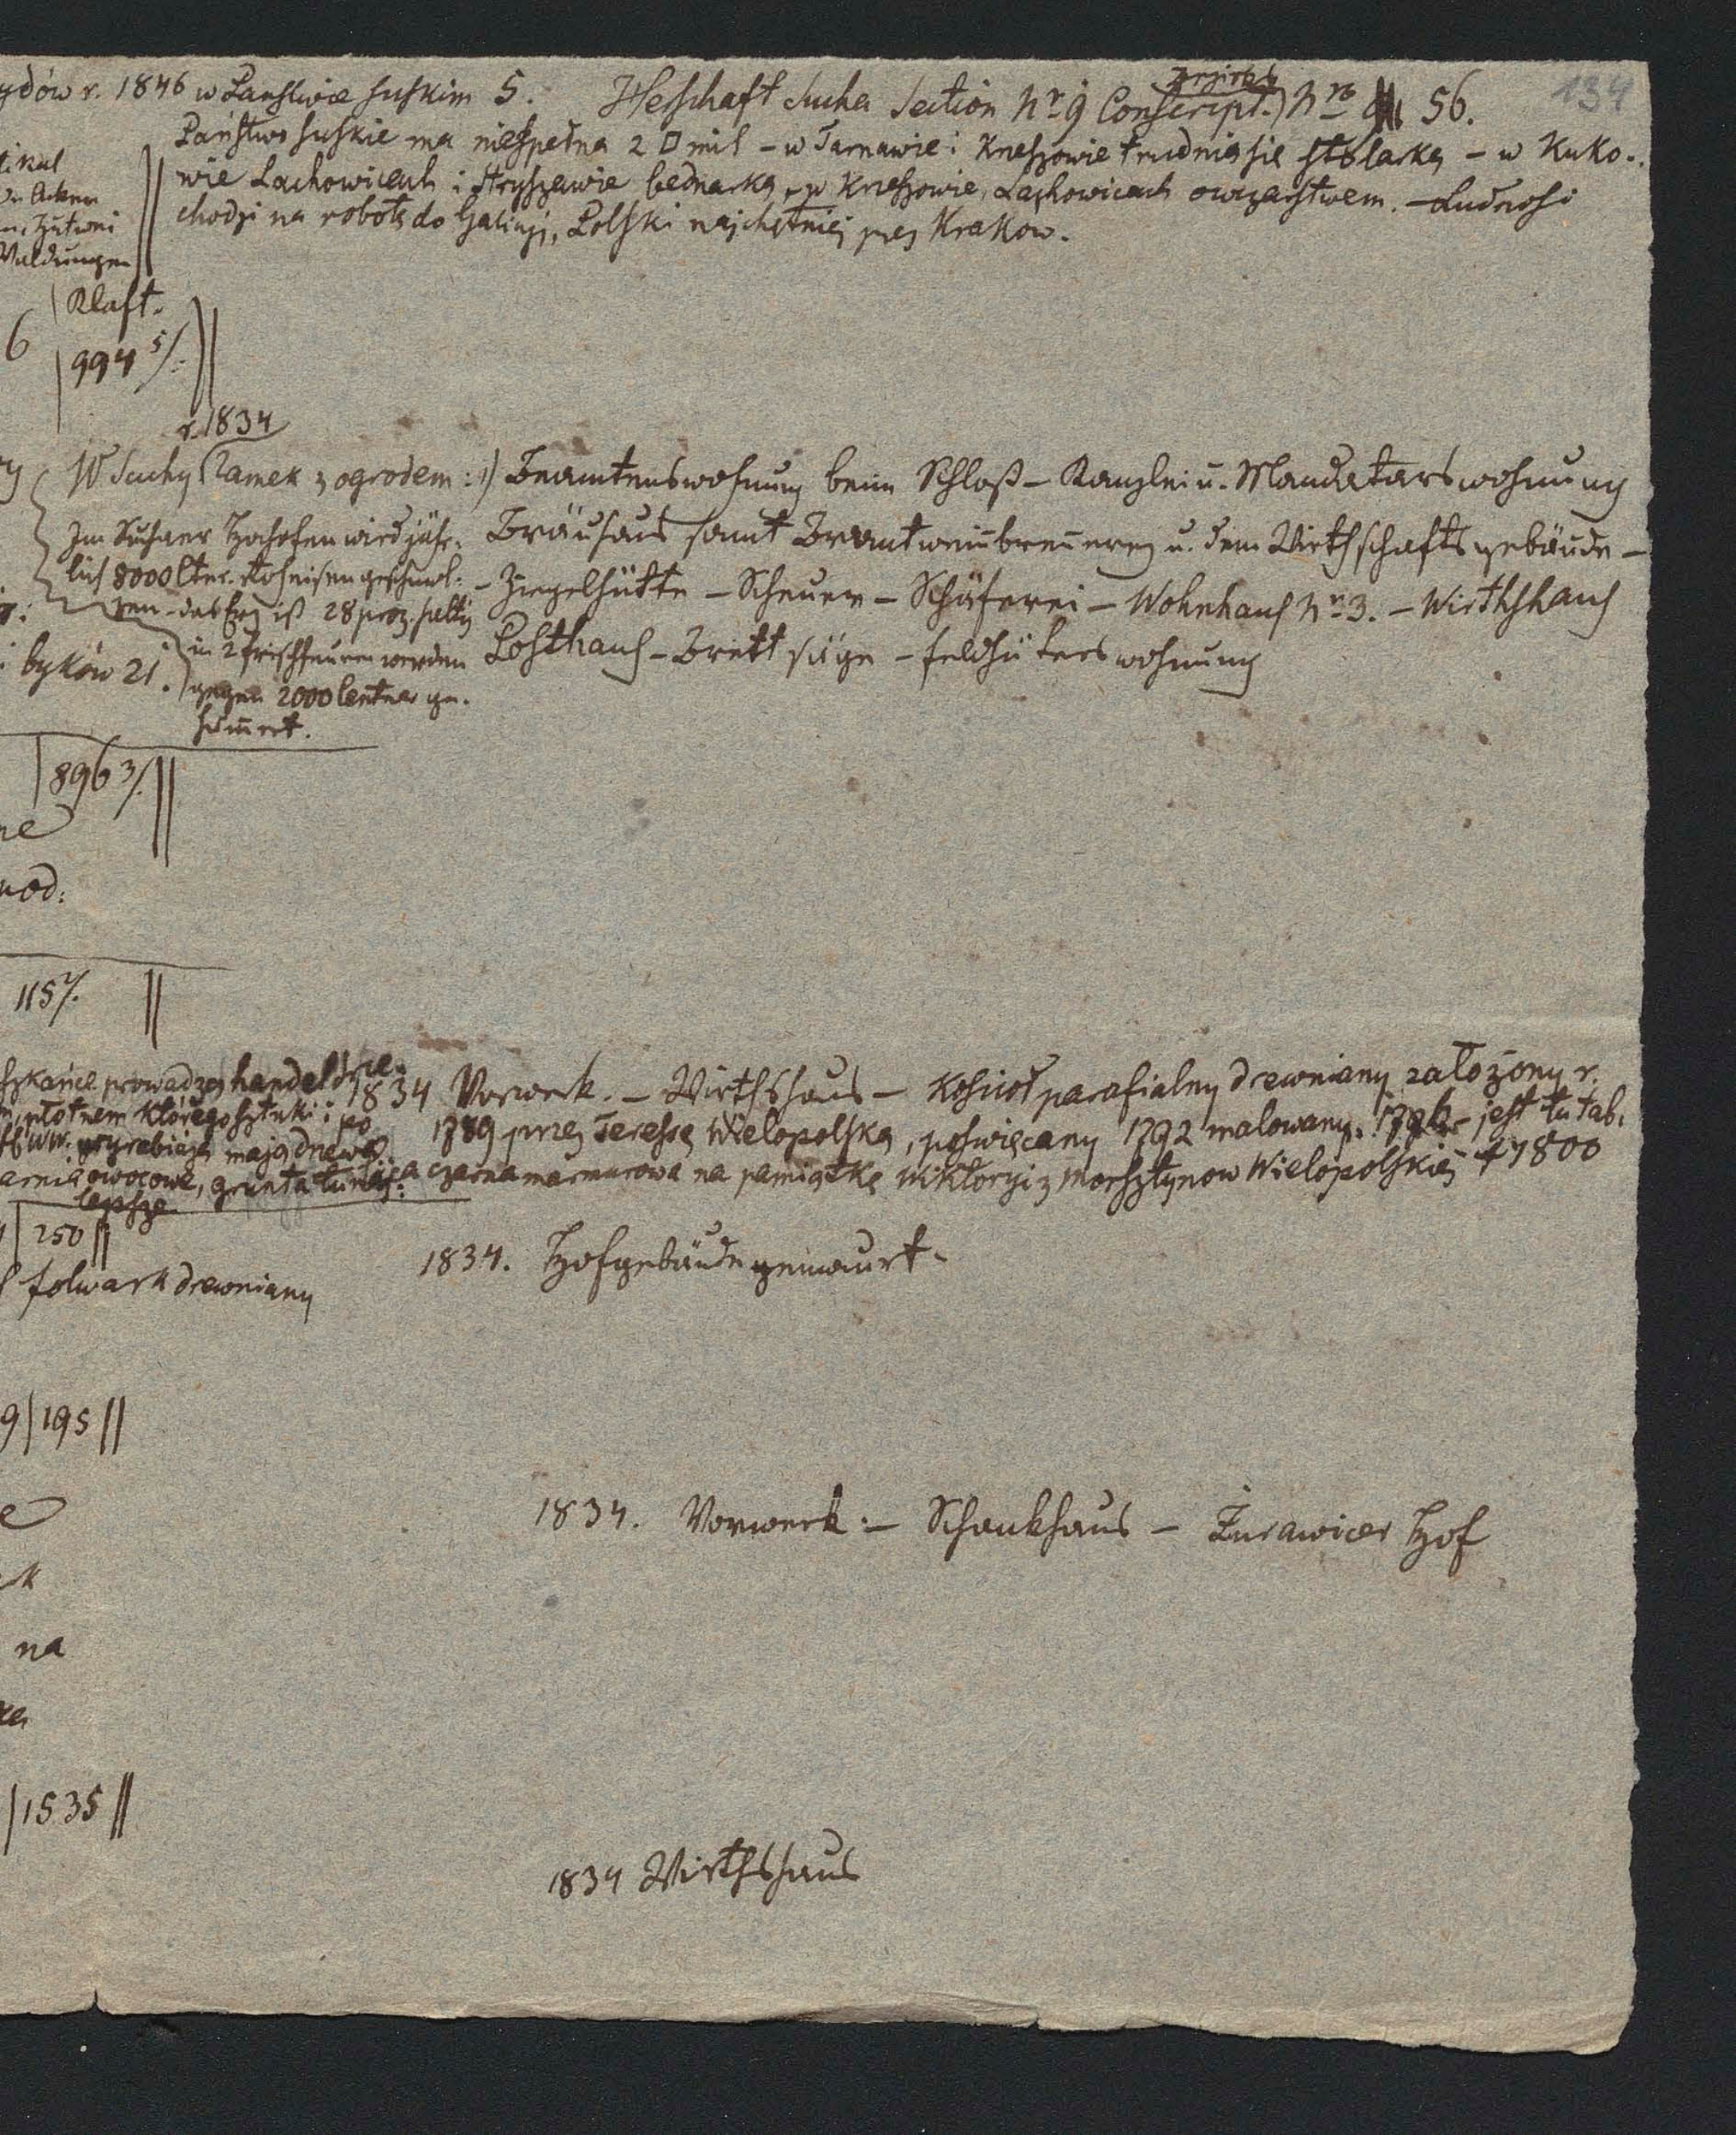 134
ydów r. 1846 w Państwie suskim 5. Hesschaft Sucha Section Nr 9 Conscript. Nro 56.
Państwo suskie ma niespełna 2 □ mil – w Tarnawie i Kneszowie trudnią się stolarką – w Kuko-
wie Lachowicach i Stryszawie bednarką, w Kneszowie, Lachowicach owczarstwem. – Ludność
chodzi na robotę do Galicyi, Polski najchętniej przez Krakow.
tikal
Acker
Waldungen
Klaft.
6 | 994 5/.
r. 1834
W Suchy Zamek z ogrodem : 1) Beamtenswohnung beim Schloß – Kanzlei u. Mandatarswohnung
Bräuhaus samt Brantweinbrennerey u. dem Wirthschaftsgebäude –
– Ziegelhütte – Scheuer – Schäferei – Wohnhaus Nr 3. – Wirthshaus
Posthaus – Brettsäge – Feldhüterswohnung
Im Suchaer Hochofen wird jähr-
lich 8000 Ctnr. Roheisen geschmol-
zen – das Erz ist 28 proz. haltig
in 2 Frischfeuern werden
gegen 2000 Centner ge-
hämert.
i byków 21.
896 3/.
ne
nod:
115 7/.
szkańce prowadzą handel
płótnem którego sztuki i po
wyrabiają mają drzewa
arnia owocowe, grunta tutaj:
lepsze
1834 Vorwerk. – Wirthshaus – Kościoł parafialny drewniany założony r.
1789 przez Teressę Wielopolską, poświęcany 1792 malowany. jest tu tab.
a czarna marmurowa na pamiątkę Wiktoryi z Morsztynow Wielopolskiej † 1800
250
folwark drewniany
1834. Hofgebäude gemauert.
9 | 195
e
k
na
1834. Vorwerk. – Schankhaus – Żurawicer Hof
1535
1834 Wirthshaus